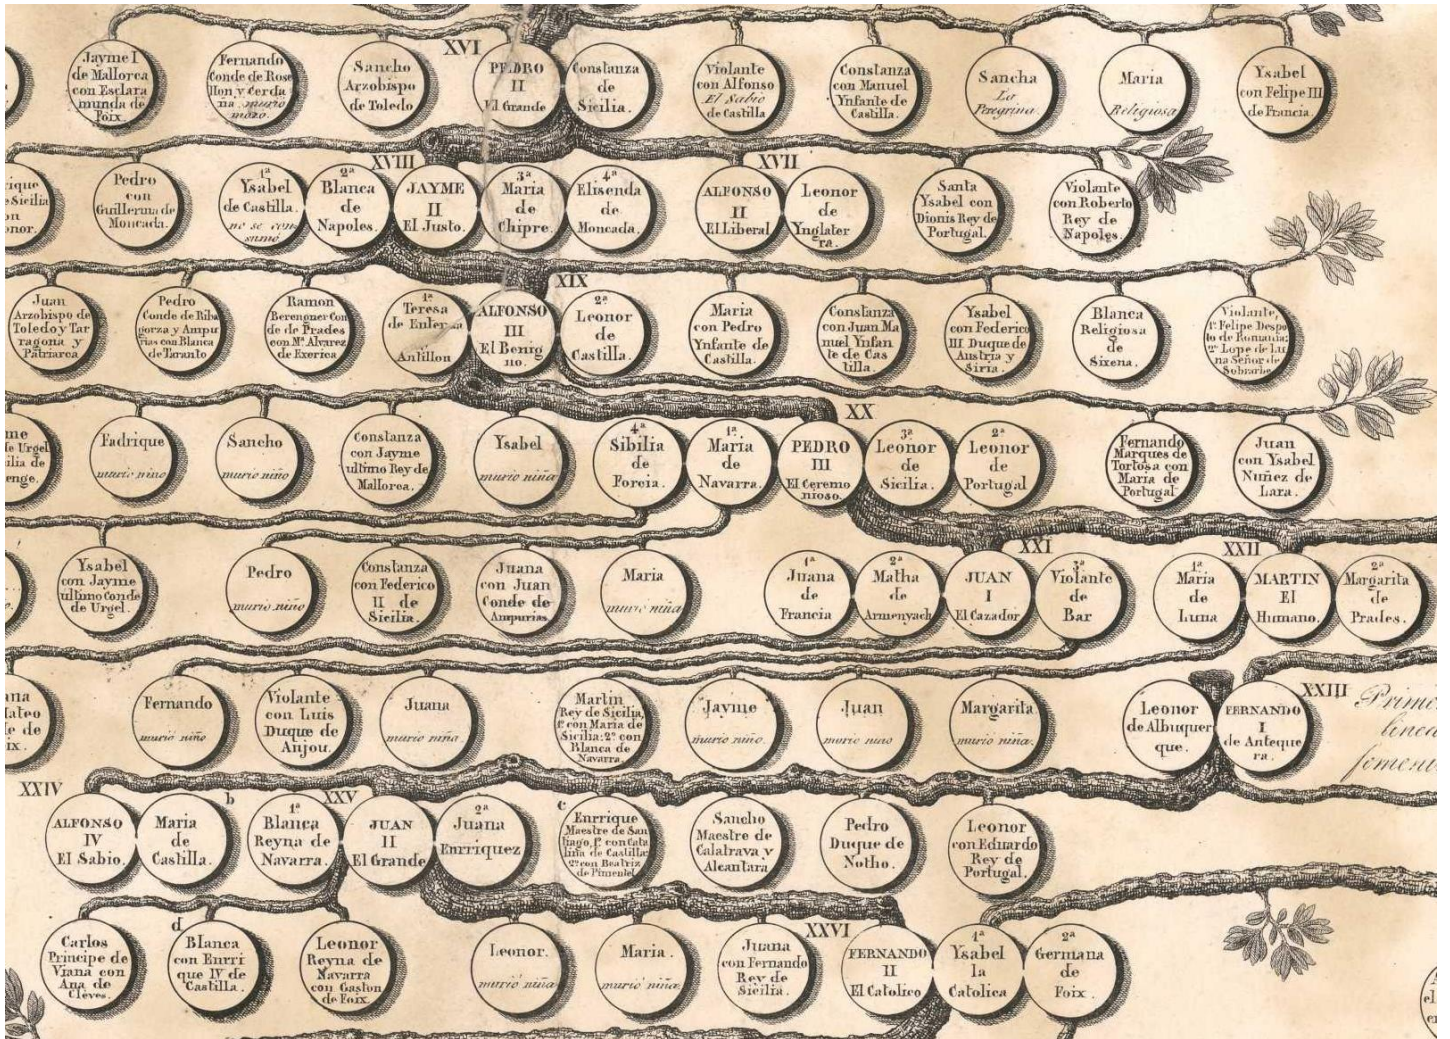 Jayme I
de Mallorca
con Esclara
munda de
Foix.
Fernando
Conde de Rose
llon y Cerda
ña. murio
mozo.
Sancho
Arzobispo
de Toledo
XVI
PEDRO
II
El Grande
Constanza
de
Sicilia.
Violante
con Alfonso
El Sabio
de Castilla
Constanza
con Manuel
Ynfante de
Castilla.
Sancha
La
Peregrina.
Maria
Religiosa
Ysabel
con Felipe III
de Francia.
Pedro
con
Guillerma de
Moncada.
1ª
Ysabel
de Castilla.
no se con
sumó
2ª
Blanca
de
Napoles.
XVIII
JAYME
II
El Justo.
3ª
Maria
de
Chipre.
4ª
Elisenda
de
Moncada.
XVII
ALFONSO
II
El Liberal
Leonor
de
Ynglater
ra.
Santa
Ysabel con
Dionis Rey de
Portugal.
Violante
con Roberto
Rey de
Napoles.
Juan
Arzobispo de
Toledo y Tar
ragona y
Patriarca
Pedro
Conde de Riba
gorza y Ampu
rias con Blanca
de Taranto
Ramon
Berenguer Con
de de Prades
con Mª Alvarez
de Exerica
1ª
Teresa
de Entenza
Antillon
XIX
ALFONSO
III
El Benig
no.
2ª
Leonor
de
Castilla.
Maria
con Pedro
Ynfante de
Castilla.
Constanza
con Juan Ma
nuel Ynfan
te de Cas
tilla.
Ysabel
con Federico
III Duque de
Austria y
Siria.
Blanca
Religiosa
de
Sixena.
Violante,
1º Felipe Despo
to de Romania;
2º Lope de Lu
na Señor de
Sobrarbe
Fadrique
murio niño
Sancho
murio niño
Constanza
con Jayme
ultimo Rey de
Mallorca.
Ysabel
murio niña
4ª
Sibilia
de
Forcia.
1ª
Maria
de
Navarra.
XX
PEDRO
III
El Ceremo
nioso.
3ª
Leonor
de
Sicilia.
2ª
Leonor
de
Portugal
Fernando
Marques de
Tortosa con
Maria de
Portugal
Juan
con Ysabel
Nuñez de
Lara.
Ysabel
con Jayme
ultimo Conde
de Urgel.
Pedro
murio niño
Constanza
con Federico
II de
Sicilia.
Juana
con Juan
Conde de
Ampurias.
Maria
murio niña
1ª
Juana
de
Francia
2ª
Matha
de
Armenyach
XXI
JUAN
I
El Cazador
3ª
Violante
de
Bar
1ª
Maria
de
Luna
XXII
MARTIN
El
Humano.
2ª
Margarita
de
Prades.
Fernando
murio niño
Violante
con Luis
Duque de
Anjou.
Juana
murio niña
Martin
Rey de Sicilia,
1º con Maria de
Sicilia: 2º con
Blanca de
Navarra.
Jayme
murio niño.
Juan
murio niño
Margarita
murio niña.
Leonor
de Albuquer
que.
XXIII
FERNANDO
I
de Anteque
ra.
XXIV
ALFONSO
IV
El Sabio.
b
Maria
de
Castilla.
1ª
Blanca
Reyna de
Navarra.
XXV
JUAN
II
El Grande
2ª
Juana
Enrriquez
c
Enrrique
Maestre de San
tiago, 1º con Cata
lina de Castilla:
2º con Beatriz
de Pimentel
Sancho
Maestre de
Calatrava y
Alcantara
Pedro
Duque de
Notho.
Leonor
con Eduardo
Rey de
Portugal.
Carlos
Principe de
Viana con
Ana de
Cleves.
d
Blanca
con Enrri
que IV de
Castilla.
Leonor
Reyna de
Navarra
con Gaston
de Foix.
Leonor.
murió niña
Maria.
murió niña
Juana
con Fernando
Rey de
Sicilia.
XXVI
FERNANDO
II
El Catolico
1ª
Ysabel
la
Catolica
2ª
Germana
de
Foix.